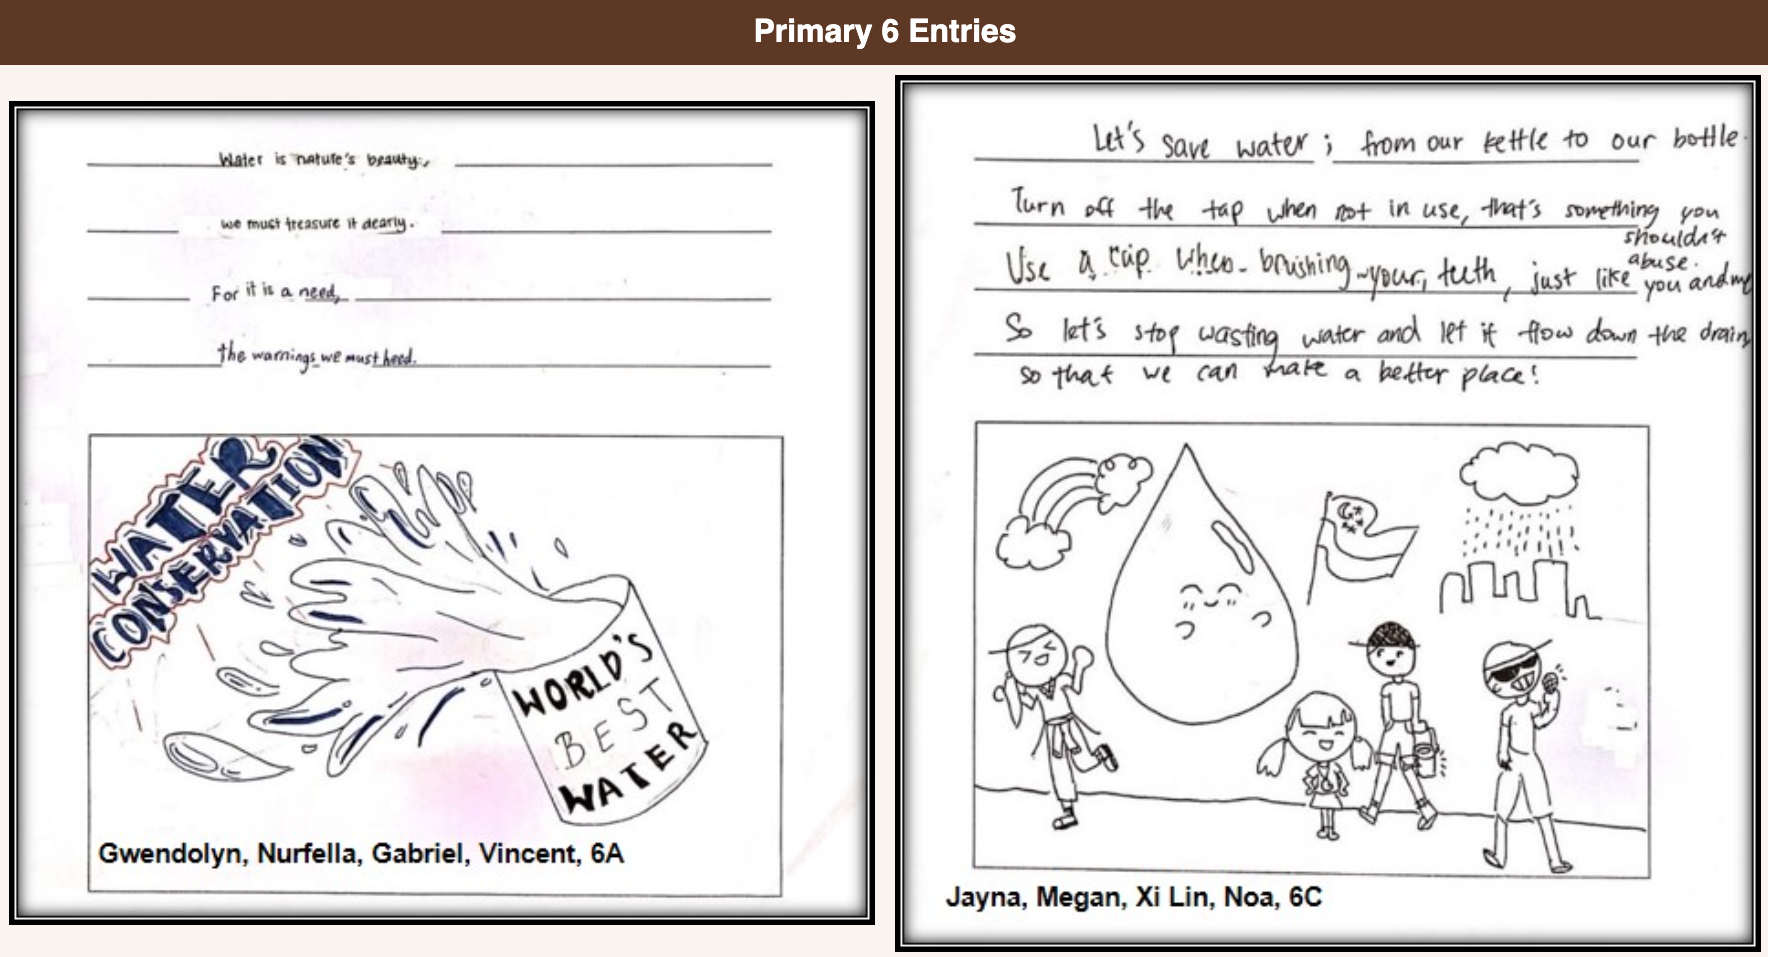 Primary 6 Entries
Water is nature's beauty,
we must treasure it dearly.
For it is a need,
the warnings we must heed.
WATER
CONSERVATION
WORLD'S
BEST
WATER
Gwendolyn, Nurfella, Gabriel, Vincent, 6A
Let's save water ; from our kettle to our bottle.
Turn off the tap when not in use, that's something you
shouldn't
abuse.
Use a cup when brushing your teeth, just like you and me
So let's stop wasting water and let it flow down the drain
so that we can make a better place!
Jayna, Megan, Xi Lin, Noa, 6C